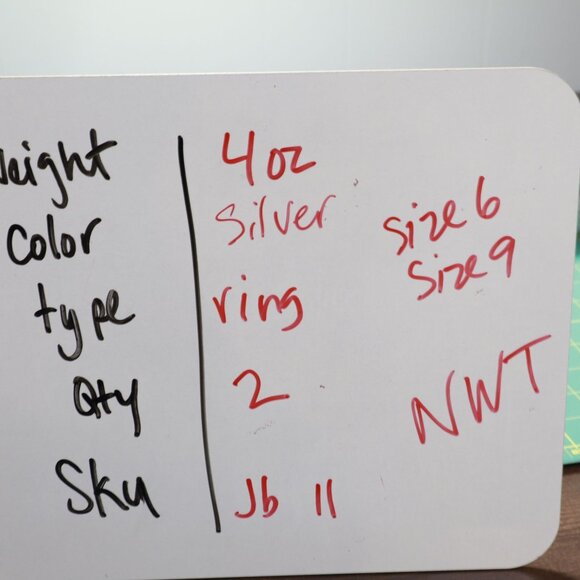 Weight 4oz
Color Silver size 6
size 9
type ring
Qty 2 NWT
Sku Jb 11